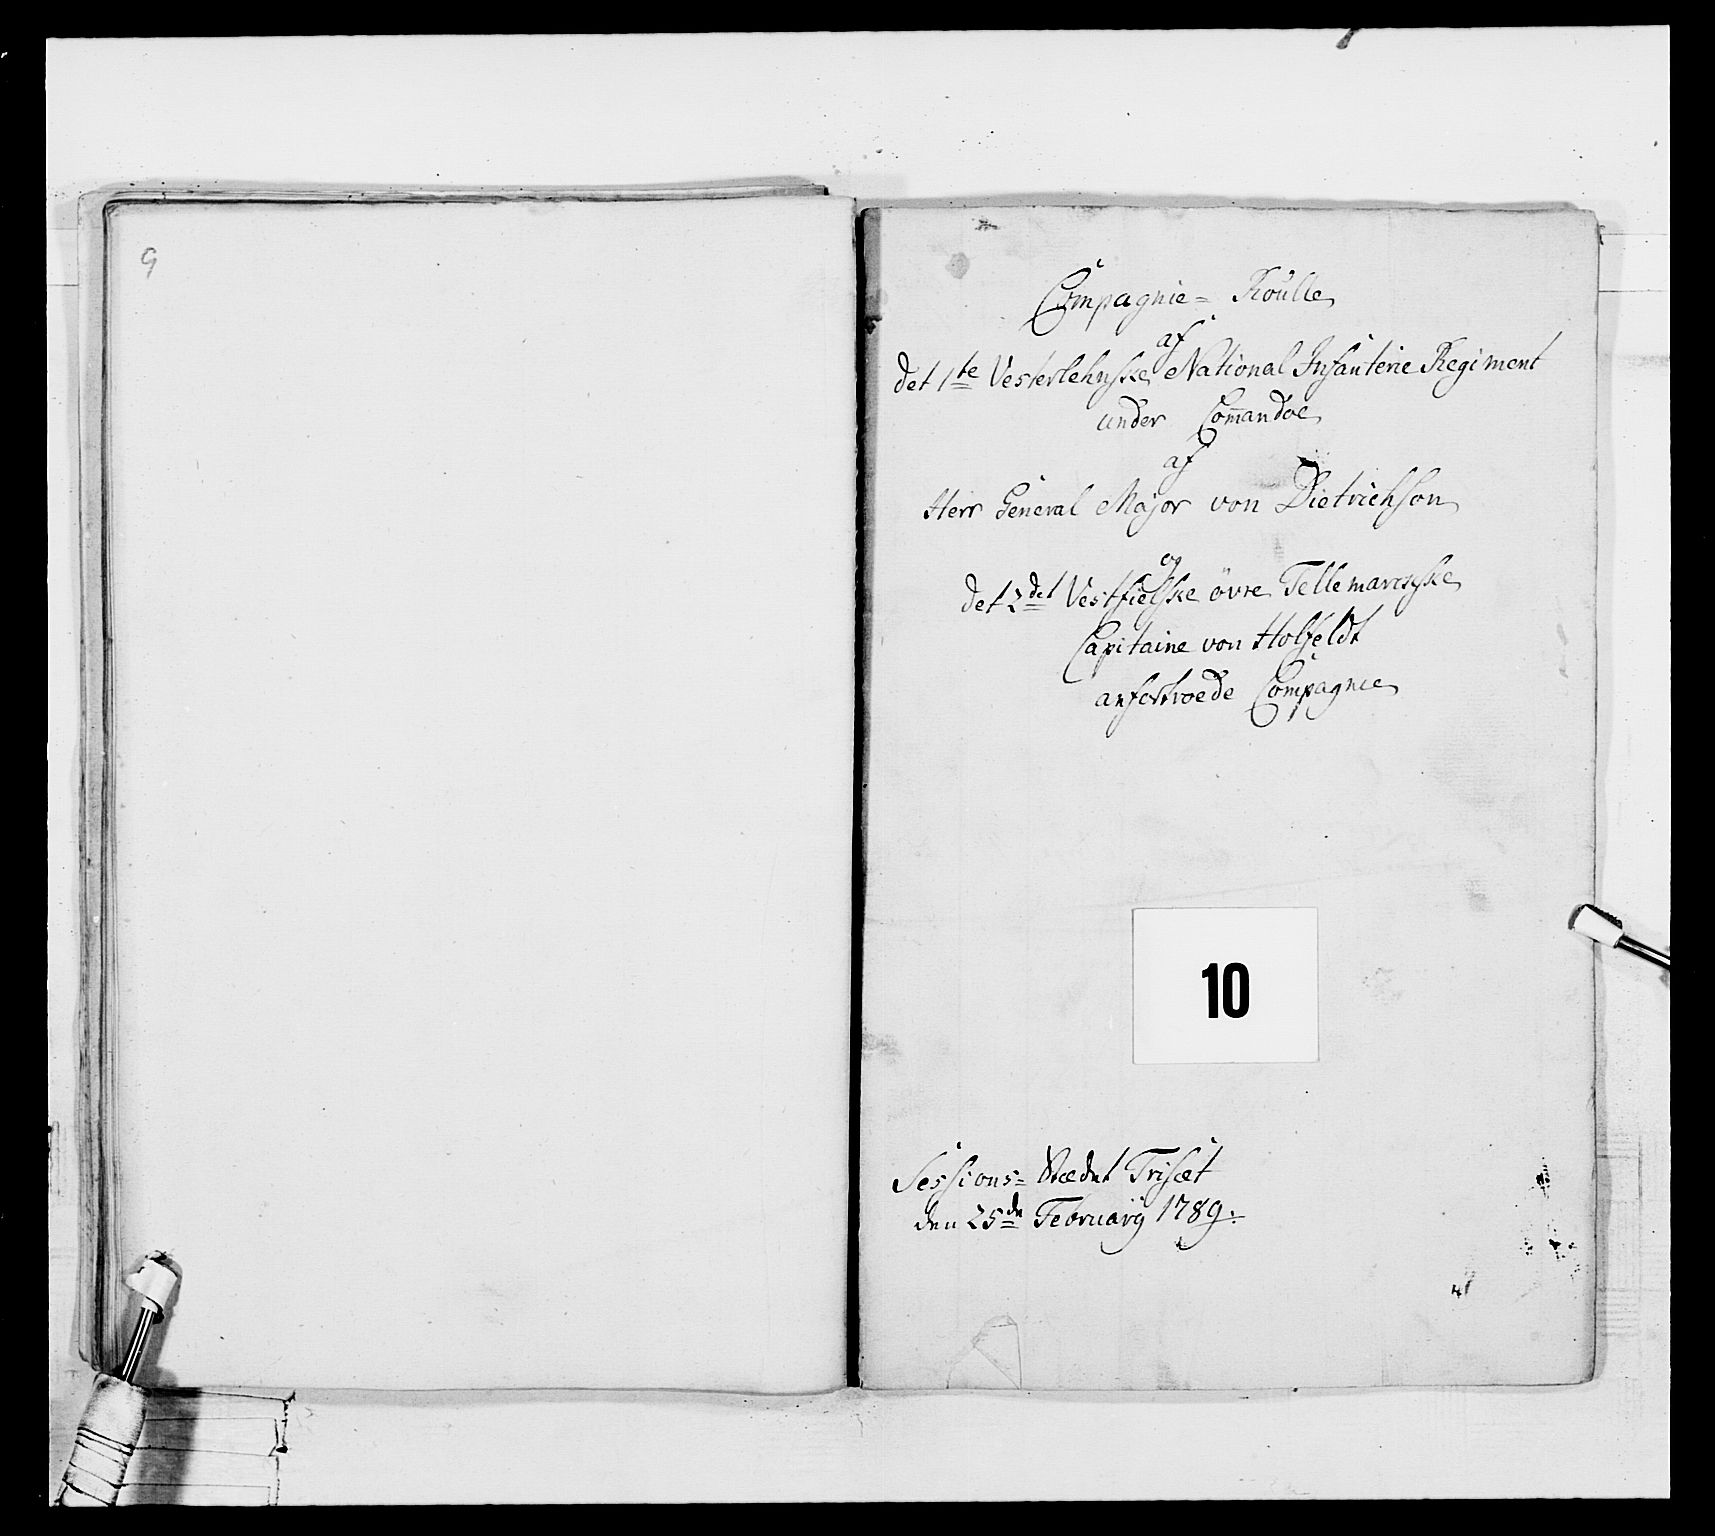 9
Compagnie= Roulle
af
det 1te Vesterlehnske National Infanterie Regiment
under Com̄andoe
af
Herr General Major von Dietrichson
og
det 2det Vestfielske övre Tellemarckske
Capitaine von Holfeldt
anfortroede Compagnie
10
Sessions= Stædet Trisæt
den 25de Februarÿ 1789.